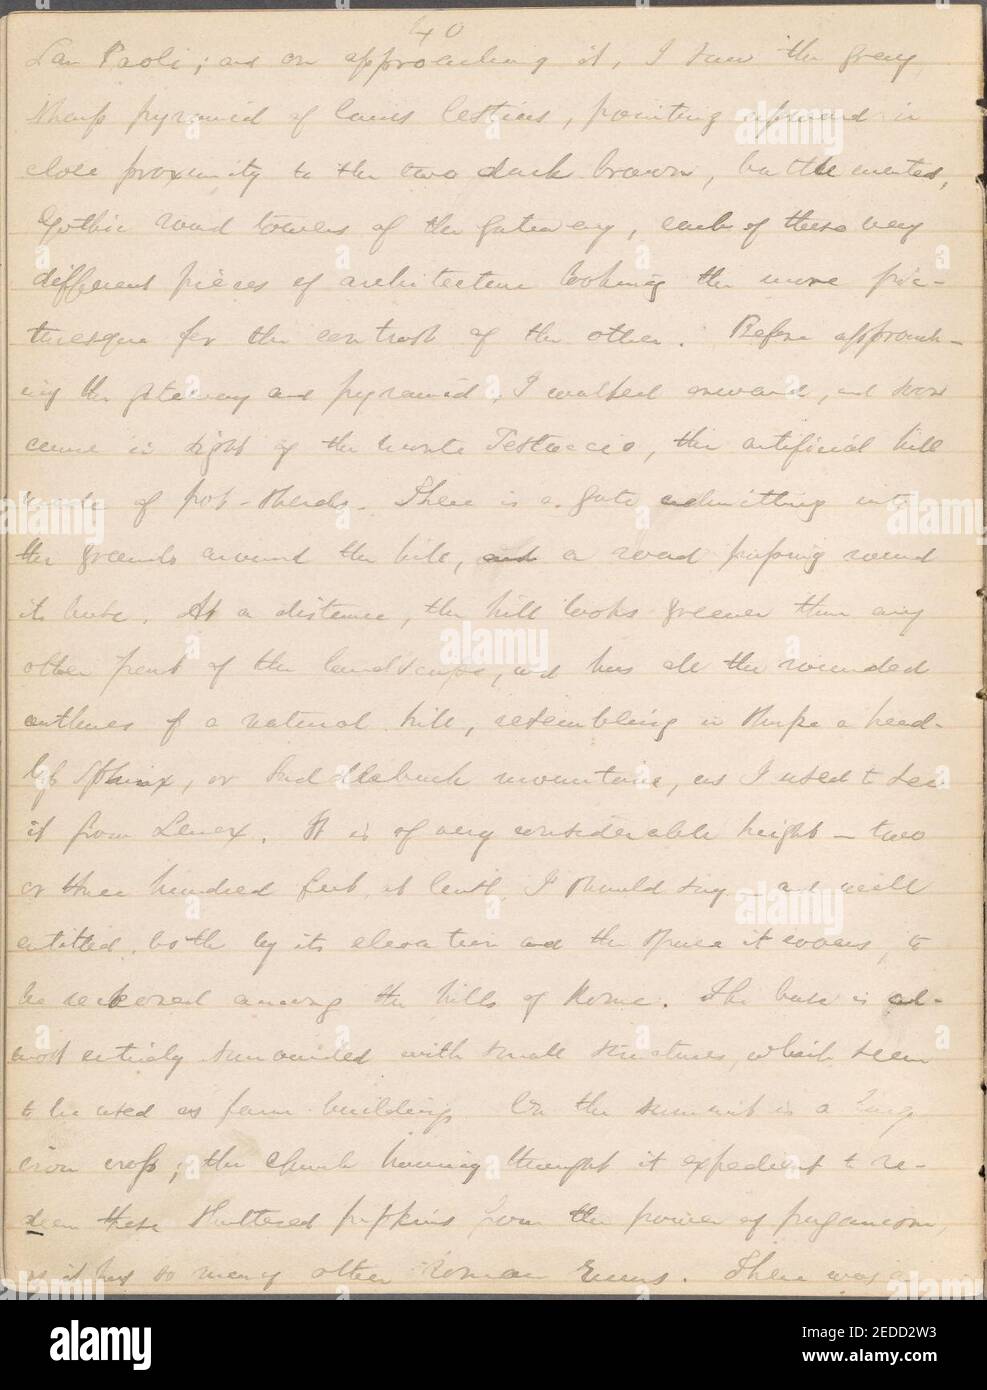 40
San Paoli; and on approaching it, I saw the gray
sharp pyramid of Caius Cestius, pointing upward in
close proximity to the two dark brown, battlemented,
Gothic round towers of the gateway, each of these very
different pieces of architecture looking the more pic-
turesque for the contrast of the other. Before approach-
ing the gateway and pyramid, I walked onward, and soon
came in sight of the Monte Testaccio, the artificial hill
made of pot-sherds. There is a gate admitting into
the grounds around the hill, and a road passing round
its base. At a distance, the hill looks greener than any
other part of the landscape, and has all the rounded
outlines of a natural hill, resembling in shape a head-
less Sphinx, or Saddleback mountain, as I used to see
it from Lenox. It is of very considerable height - two
or three hundred feet, at least, I should say - and well
entitled, both by its elevation and the space it covers, to
be reckoned among the hills of Rome. The base is al-
most entirely surrounded with small structures, which seem
to be used as farm-buildings. On the summit is a large
iron cross; the Church having thought it expedient to re-
deem these shattered pipkins from the power of paganism,
as it has so many other Roman ruins. There was a
alamy
alamy
alamy
alamy
alamy
alamy
alamy
Image ID: 2EDD2W3
www.alamy.com